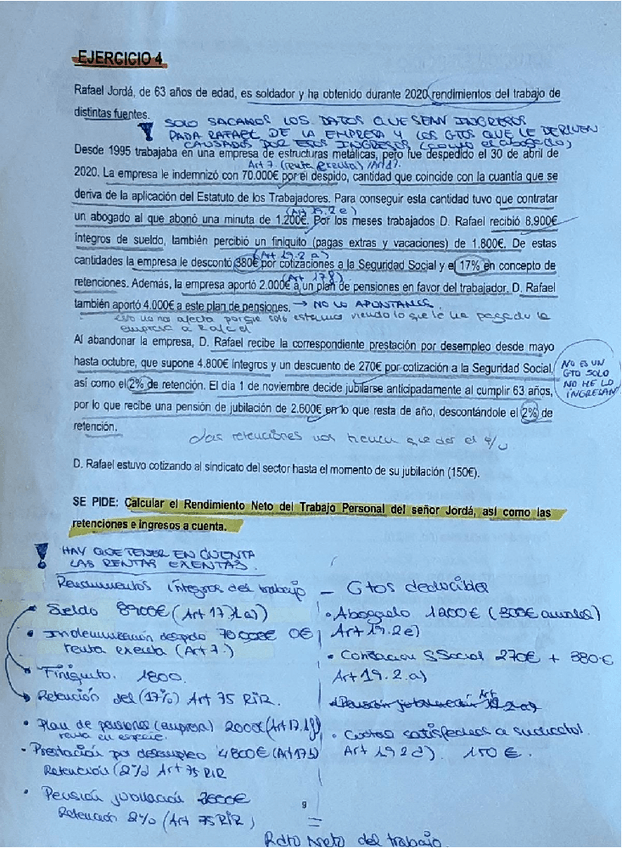 EJERCICIO 4
Rafael Jordá, de 63 años de edad, es soldador y ha obtenido durante 2020 rendimientos del trabajo de
distintas fuentes.
SOLO SACAMOS LOS DATOS QUE SEAN INGRESOS
PARA RAFAEL DE LA EMPRESA Y LOS GTOS QUE LE DERIVEN
CAUSADOS POR ESOS INGRESOS (como el abogado)
Desde 1995 trabajaba en una empresa de estructuras metálicas, pero fue despedido el 30 de abril de
Art 7. (renta exenta)
2020. La empresa le indemnizó con 70.000€ por el despido, cantidad que coincide con la cuantía que se
deriva de la aplicación del Estatuto de los Trabajadores. Para conseguir esta cantidad tuvo que contratar
(Art 19.2 e)
un abogado al que abonó una minuta de 1.200€. Por los meses trabajados D. Rafael recibió 8.900€
íntegros de sueldo, también percibió un finiquito (pagas extras y vacaciones) de 1.800€. De estas
(Art 19.2 a)
cantidades la empresa le descontó 380€ por cotizaciones a la Seguridad Social y el 17% en concepto de
retenciones. Además, la empresa aportó 2.000€ a un plan de pensiones en favor del trabajador. D. Rafael
también aportó 4.000€ a este plan de pensiones. → NO LO APUNTAMOS
eso no nos afecta porque solo estamos viendo lo que le ha pagado la
empresa a Rafael
Al abandonar la empresa, D. Rafael recibe la correspondiente prestación por desempleo desde mayo
hasta octubre, que supone 4.800€ íntegros y un descuento de 270€ por cotización a la Seguridad Social,
así como el 2% de retención. El día 1 de noviembre decide jubilarse anticipadamente al cumplir 63 años,
por lo que recibe una pensión de jubilación de 2.600€ en lo que resta de año, descontándole el 2% de
retención.
NO ES UN
GTO SOLO
NO HE LO
INGRESAN
Las retenciones nos tienen que dar el %
D. Rafael estuvo cotizando al sindicato del sector hasta el momento de su jubilación (150€).
SE PIDE: Calcular el Rendimiento Neto del Trabajo Personal del señor Jordá, así como las
retenciones e ingresos a cuenta.
HAY QUE TENER EN CUENTA
LAS RENTAS EXENTAS.
Rendimientos íntegros del trabajo
• Sueldo 8900€ (Art 17.1.a)
• Indemnización despido 70000€ 0€
renta exenta (Art 7.)
• Finiquito. 1800.
• Retención del (17%) Art 75 RIR.
• Plan de pensiones (empresa) 2000€ (Art 17.1.f)
renta en especie.
• Prestación por desempleo 4800€ (Art 17.1.b)
Retención (2%) Art 75 RIR
• Pensión jubilación 2600€
Retención 2% (Art 75 RIR)
– Gtos deducibles
• Abogado 1200€ (300€ anuales)
Art 19.2 e)
• Cotización SSocial 270€ + 380€
Art 19.2.a)
• Pensión jubilación Art
• Cuotas satisfechas a sindicatos.
Art 19.2 d). 150€.
9
=
Rdto Neto del trabajo.